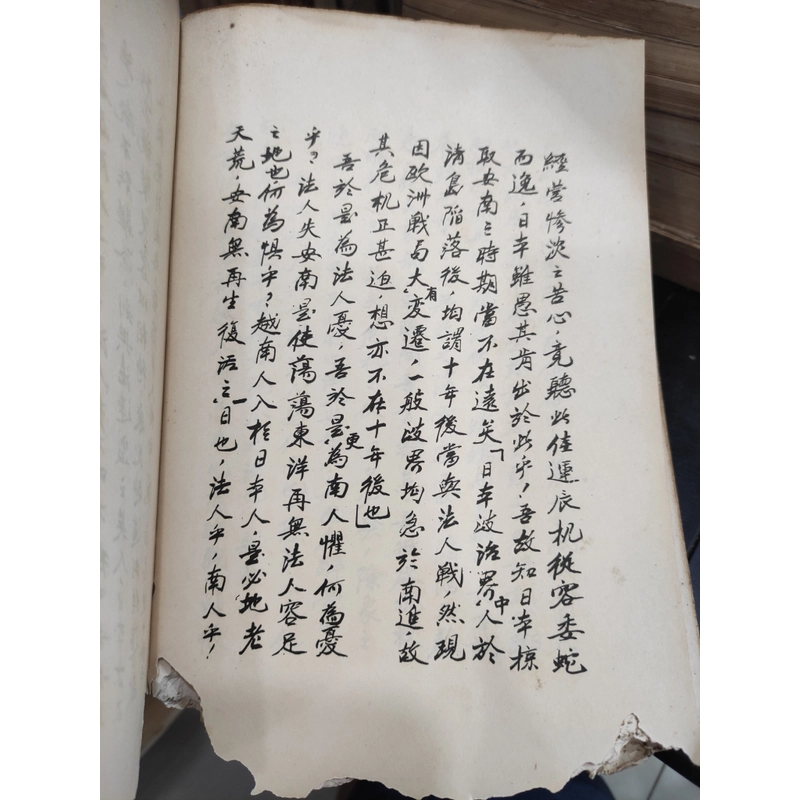 經营惨淡之苦心，竟聽此佳運辰机從容委蛇
而逸，日本雖愚其肯出於此乎！吾故知日本掠
取安南之時期當不在遠矣「日本政治界中人於
清島陷落後，均謂十年後當與法人戰，然現
因欧洲戰局大有变遷，一般政界均急於南進，故
其危机正甚迫，想亦不在十年後也」
吾於是為法人憂，吾於是更為南人懼，何為憂
乎？法人失安南是使蕩蕩東洋再無法人容足
之地也何為懼乎？越南人入於日本人，是必地老
天荒，安南無再生復活之一日也，法人乎，南人乎！